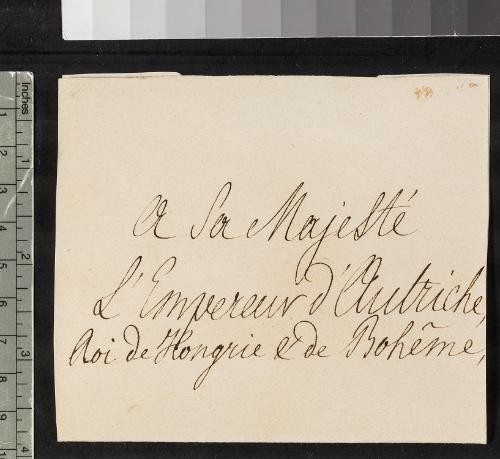 A Sa Majesté
L'Empereur d'Autriche,
Roi de Hongrie & de Bohême,
Inches
1
2
3
4
5
6
7
8
9
10
1
2
3
4